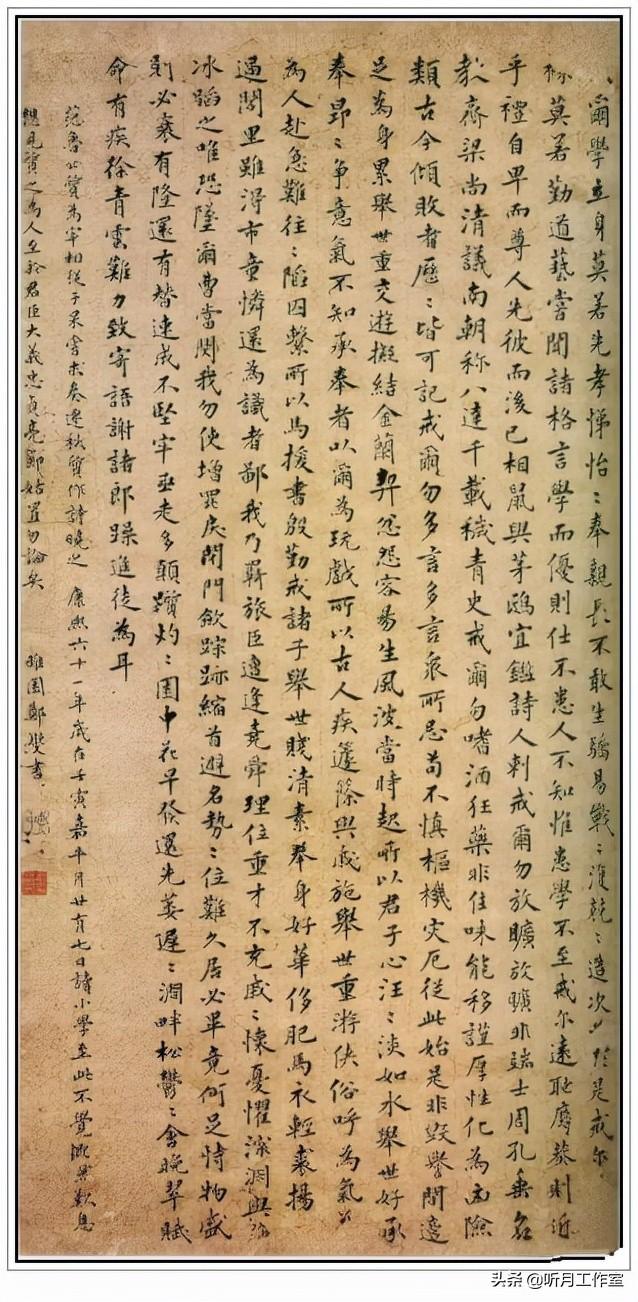 爾學立身莫若先孝悌怡〻奉親長不敢生驕易戰〻復兢〻造次必於是戒尔
莫若勤道藝嘗聞諸格言學而優則仕不患人不知惟患學不至戒尔遠耻辱恭則近
乎禮自卑而尊人先彼而後己相鼠與茅鴟宜鑑詩人刺戒爾勿放曠放曠非端士周孔垂名
教齊梁尚清議南朝称八達千載穢青史戒爾勿嗜酒狂藥非佳味能移謹厚性化為凶險
類古今傾敗者歷〻皆可記戒爾勿多言多言衆所忌苟不慎樞機灾厄從此始是非毀譽間適
足為身累舉世重交遊擬結金蘭契忿怨容易生風波當時起所以君子心汪〻淡如水舉世好承
奉昂〻争意氣不知承奉者以爾為玩戲所以古人疾籧篨與戚施舉世重游俠俗呼為氣义
為人赴急難往〻陷囚繫所以馬援書殷勤戒諸子舉世賤清素奉身好華侈肥馬衣輕裘揚
過閭里雖得市童憐還為識者鄙我乃羈旅臣遭逢堯舜理位重才不充戚〻懷憂懼深淵與薄
冰蹈之唯恐墜爾曹當閔我勿使增罪戾閉門斂踪跡縮首避名勢〻位難久居必畢竟何足恃物盛
則必衰有隆還有替速成不堅牢亟走多顛躓灼〻園中花早發還先萎遲〻澗畔松鬱〻含晚翠賦
命有疾徐青雲難力致寄語謝諸郎躁進徒為耳
范魯公質為宰相從子杲嘗求奏遷秩質作詩曉之 康熙六十一年歲在壬寅嘉平月廿有七日讀小學至此不覺慨然歎息
想見質之為人至於君臣大義忠貞亮節姑置勿論矣 雎園鄭燮書
头条 @听月工作室